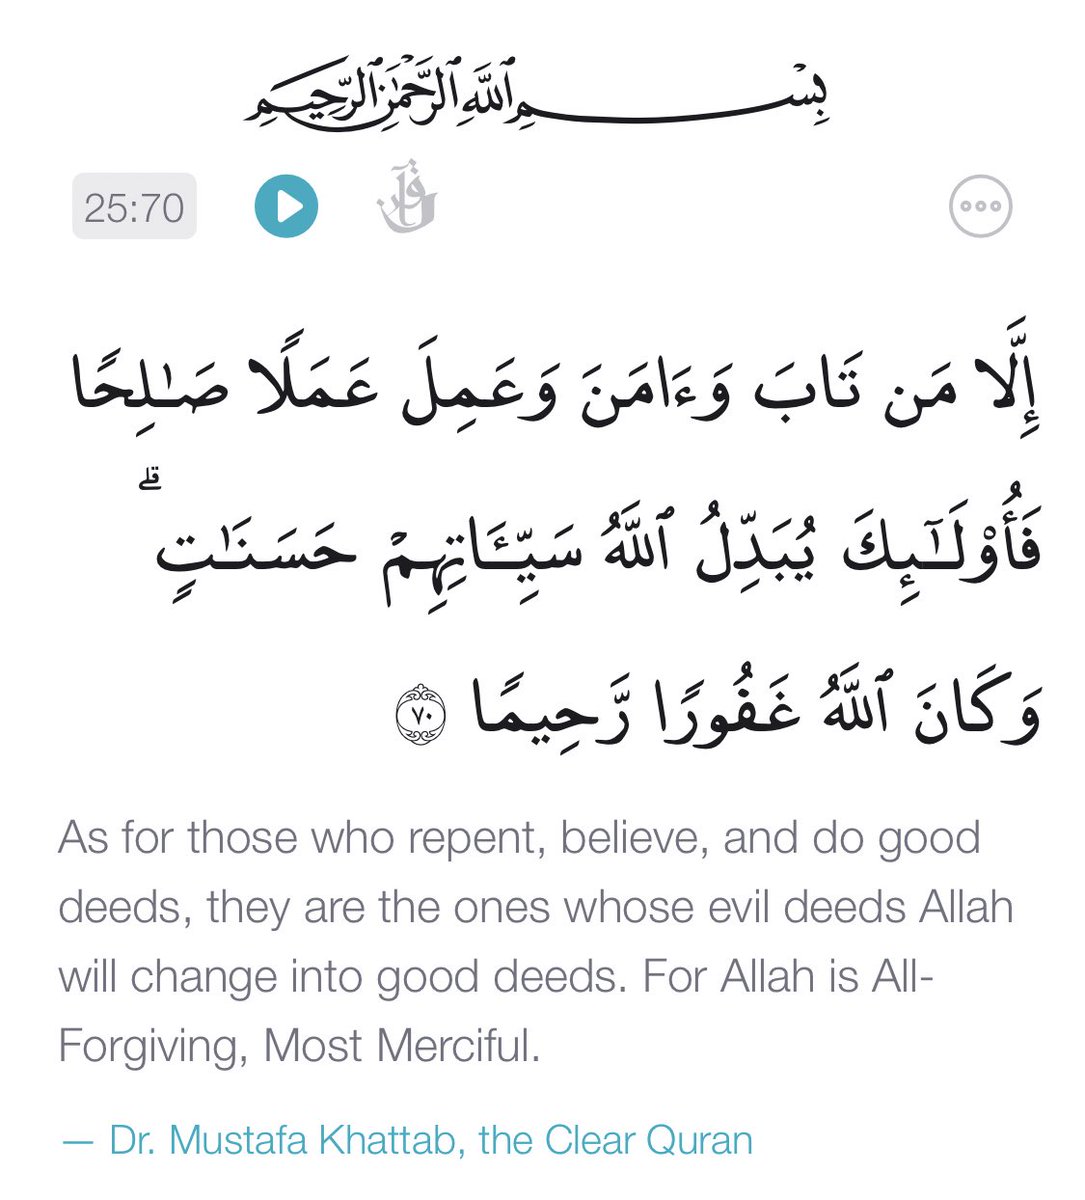 بِسْمِ ٱللَّهِ ٱلرَّحْمَٰنِ ٱلرَّحِيمِ
25:70
إِلَّا مَن تَابَ وَءَامَنَ وَعَمِلَ عَمَلًا صَـٰلِحًا
فَأُو۟لَـٰٓئِكَ يُبَدِّلُ ٱللَّهُ سَيِّـَٔاتِهِمْ حَسَنَـٰتٍ ۗ
وَكَانَ ٱللَّهُ غَفُورًا رَّحِيمًا ٧٠
As for those who repent, believe, and do good
deeds, they are the ones whose evil deeds Allah
will change into good deeds. For Allah is All-
Forgiving, Most Merciful.
— Dr. Mustafa Khattab, the Clear Quran